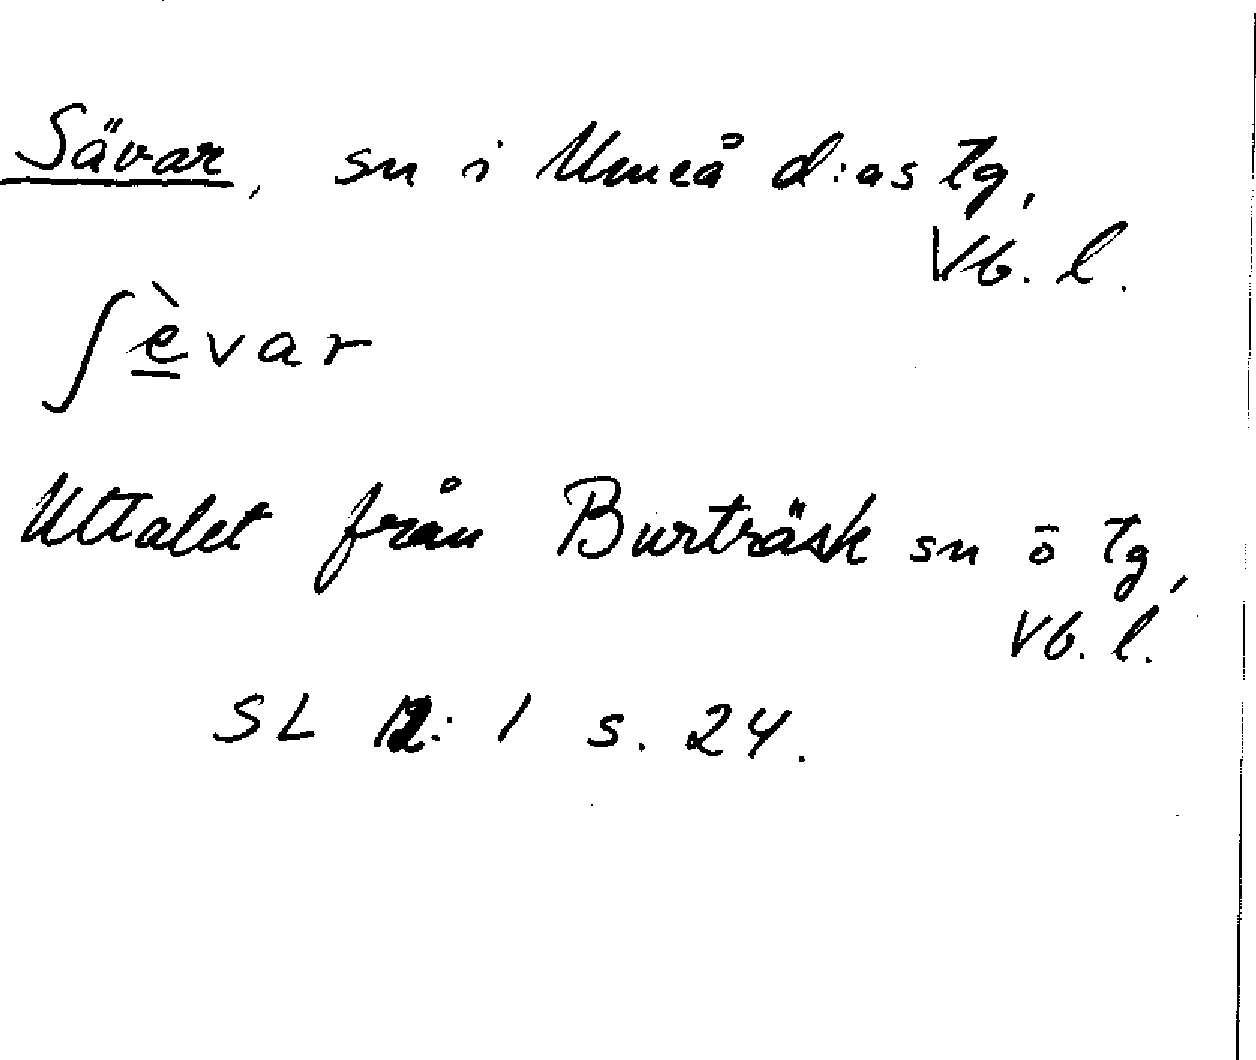 Sävar, sn i Umeå d:as tg,
Vb. l.
ʃè̱var
Uttalet från Burträsk sn ö tg,
Vb. l.
SL 12:1 s. 24.